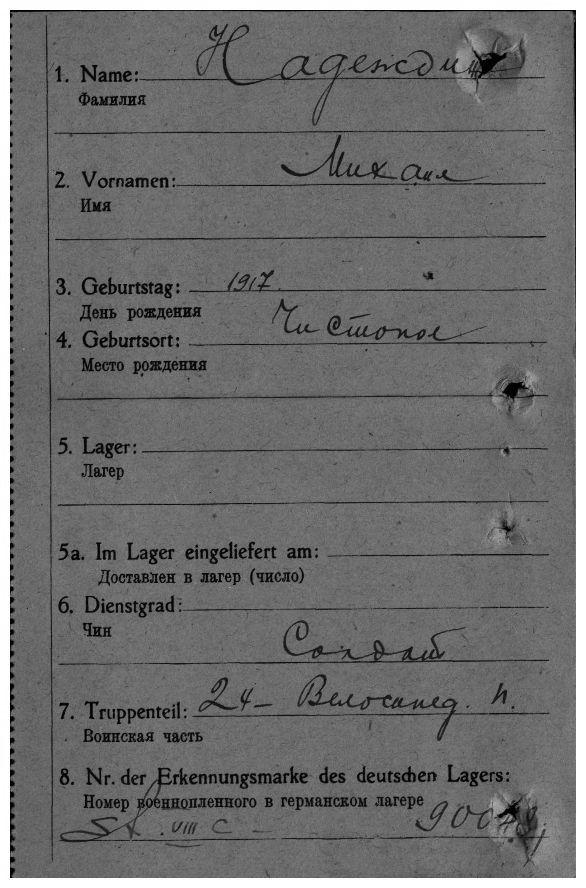 1. Name: Надеждин
Фамилия
2. Vornamen: Михаил
Имя
3. Geburtstag: 1917.
День рождения
Чистопол
4. Geburtsort:
Место рождения
5. Lager:
Лагер
5a. Im Lager eingeliefert am:
Доставлен в лагер (число)
6. Dienstgrad:
Чин
Солдат
7. Truppenteil: 24 – Велосипед. п.
Воинская часть
8. Nr. der Erkennungsmarke des deutschen Lagers:
Номер военнопленного в германском лагере
St. VIII C –